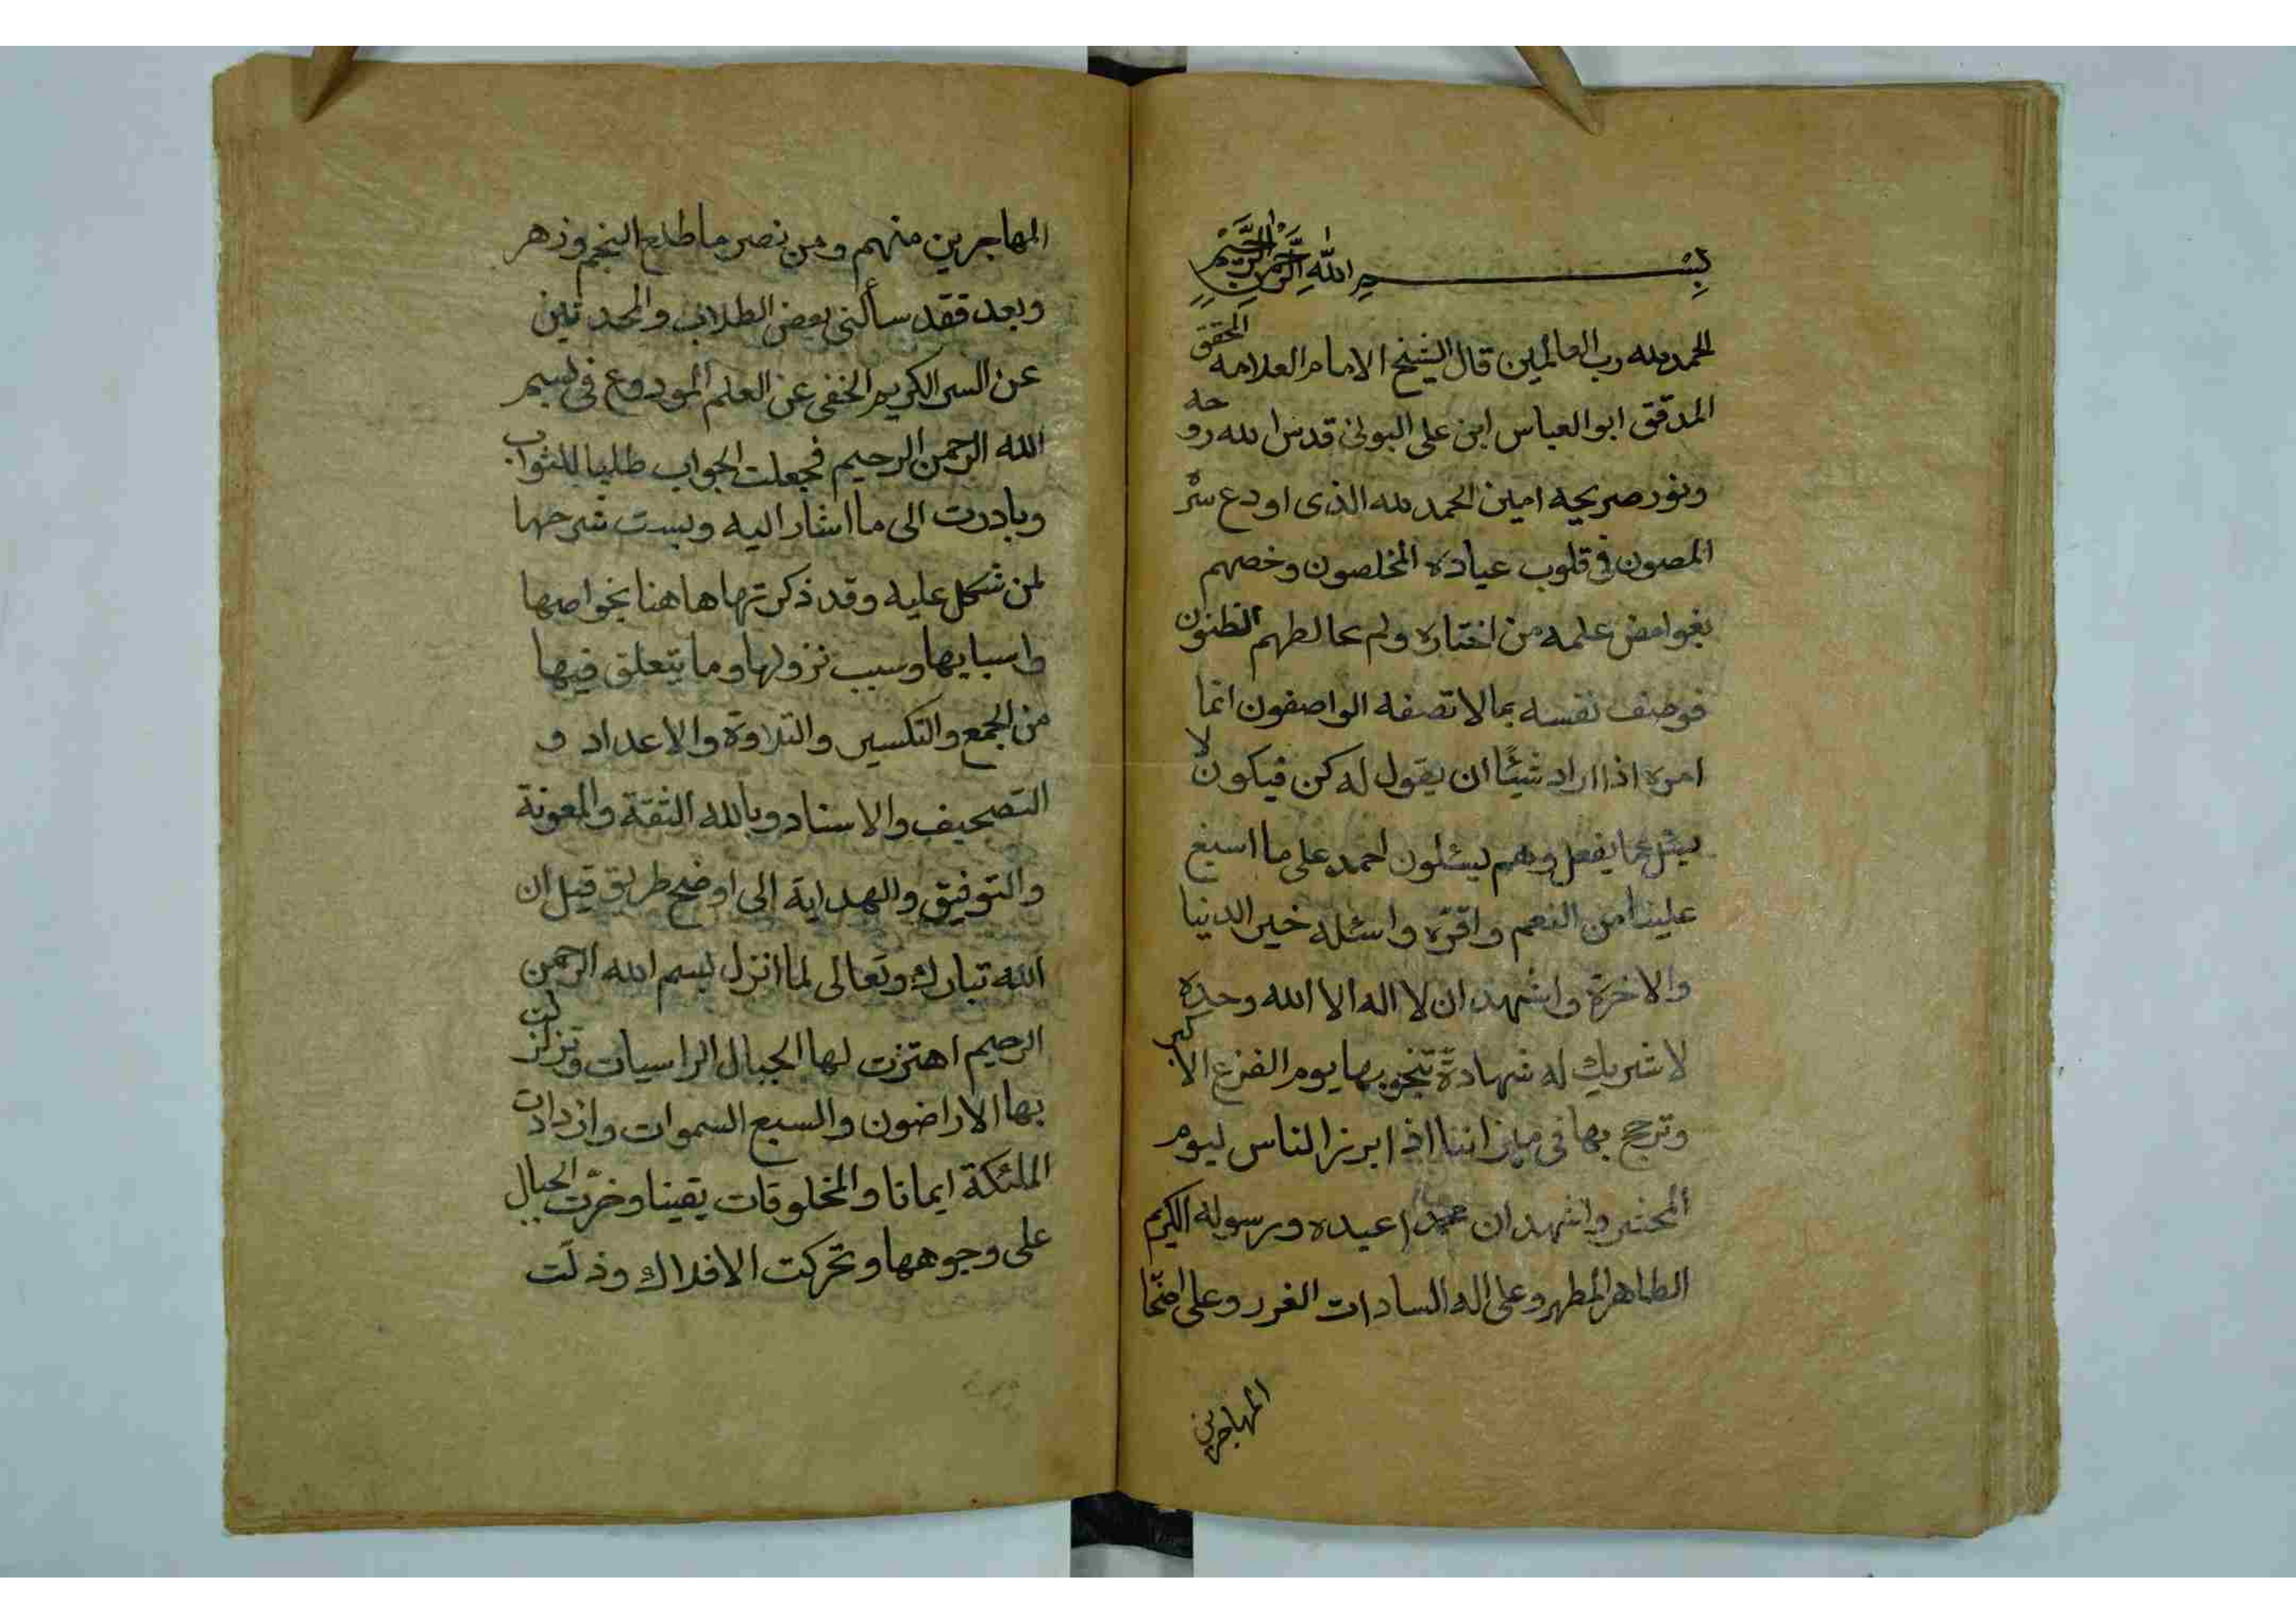 بسم الله الرحمن الرحيم
الحمد لله رب العالمين قال الشيخ الامام العلامه المحقق
المدقق ابو العباس ابن على البونى قدس الله روحه
ونور صريحه امين الحمد لله الذى اودع سر
المصون فى قلوب عباده المخلصون وخصهم
بغوامض علمه من اختاره ولم يخالطهم الظنون
فوصف نفسه بما لا تصفه الواصفون انما
امره اذا اراد شيئا ان يقول له كن فيكون لا
يسئل عما يفعل وهم يسئلون احمده على ما اسبغ
علينا من النعم واقره واسئله خير الدنيا
والاخرة واشهد ان لا اله الا الله وحده
لا شريك له شهادة تنجو بها يوم الفزع الاكبر
وترجح بها فى ميزاننا اذا برز الناس ليوم
المحشر واشهد ان محمدا عبده ورسوله الكريم
الطاهر المطهر وعلى اله السادات الغرر وعلى
المهاجرين
المهاجرين منهم ومن نصر ما طلع النجم وزهر
وبعد فقد سألنى بعض الطلاب والمحدثين
عن السر الكريم الخفى عن العلم المودوع فى بسم
الله الرحمن الرحيم فجعلت الجواب طلبا للثواب
وبادرت الى ما اشار اليه وبست شرحها
لمن شكل عليه وقد ذكرتها هاهنا بخواصها
واسبابها وسبب نزولها وما يتعلق فيها
من الجمع والتكسير والتلاوة والاعداد و
التصحيف والاسناد وبالله الثقة والمعونة
والتوفيق والهداية الى اوضح طريق قيل ان
الله تبارك وتعالى لما انزل بسم الله الرحمن
الرحيم اهتزت لها الجبال الراسيات وتزلزلت
بها الاراضون والسبع السموات وازدادت
الملئكة ايمانا والمخلوقات يقينا وخرّت الجبال
على وجوهها وتحركت الافلاك وذلّت